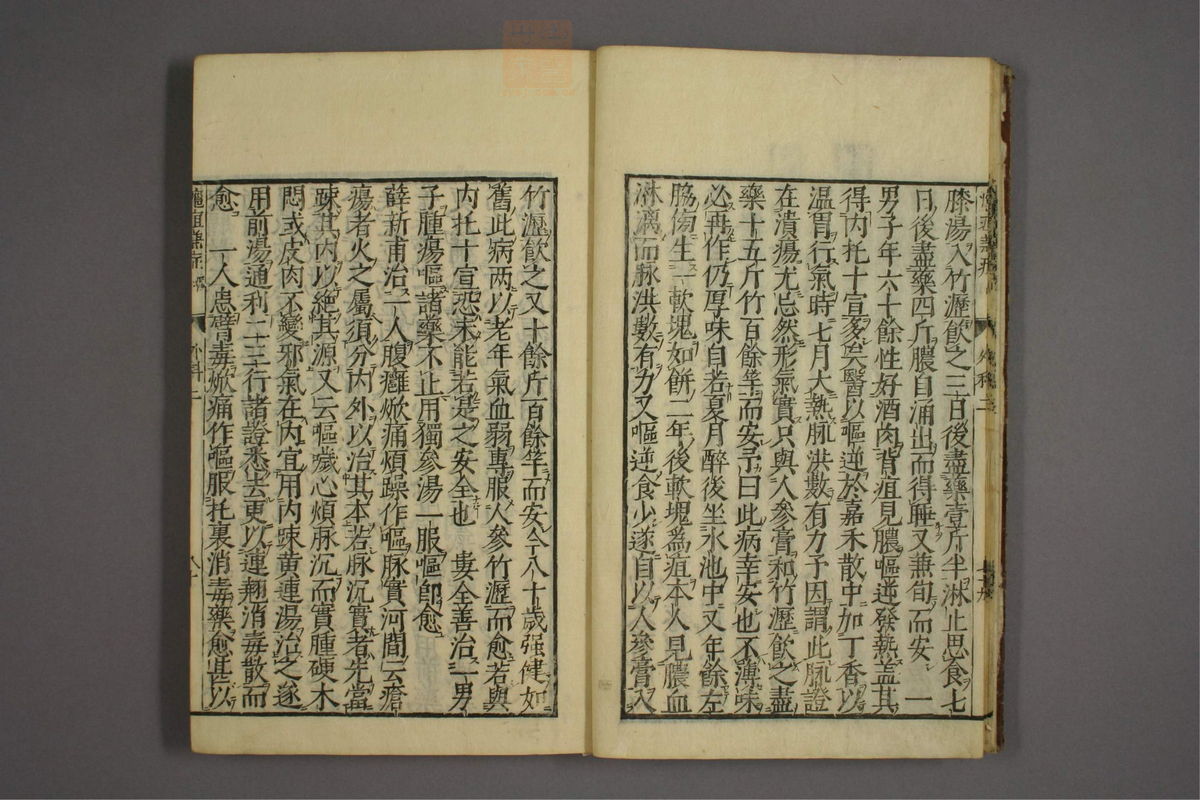 膝湯入竹瀝飲之三日後盡藥壹斤半淋止思食七
日後盡藥四斤膿自涌出而得睡又兼旬而安 一
男子年六十餘性好酒肉背疽見膿嘔逆發熱盖其
得内托十宣多矣醫以嘔逆於嘉禾散中加丁香以
温胃行氣時七月大熱脉洪數有力予因謂此脉證
在潰瘍尤忌然形氣實只與人參膏和竹瀝飲之盡
藥十五斤竹百餘竿而安予曰此病幸安也不薄味
必再作仍厚味自若夏月醉後坐水池中又年餘左
脇傍生一軟塊如餅二年後軟塊為疽本人見膿血
淋漓而脉洪數有力又嘔逆食少遂自以人參膏入
竹瀝飲之又十餘斤百餘竿而安今八十歳强健如
舊此病两以老年氣血弱專服人參竹瀝而愈若與
内托十宣恐未能若是之安全也 婁全善治一男
子腫瘍嘔諸藥不止用獨參湯一服嘔即愈
薛新甫治一人腹癰焮痛煩躁作嘔脉實河間云瘡
瘍者火之屬須分内外以治其本若脉沉實者先當
疎其内以絶其源又云嘔噦心煩脉沉而實腫硬木
悶或皮肉不變邪氣在内宜用内疎黄連湯治之遂
用前湯通利二三行諸證悉去更以連翹消毒散而
愈 一人患臂毒焮痛作嘔服托裏消毒藥愈甚以
外科二